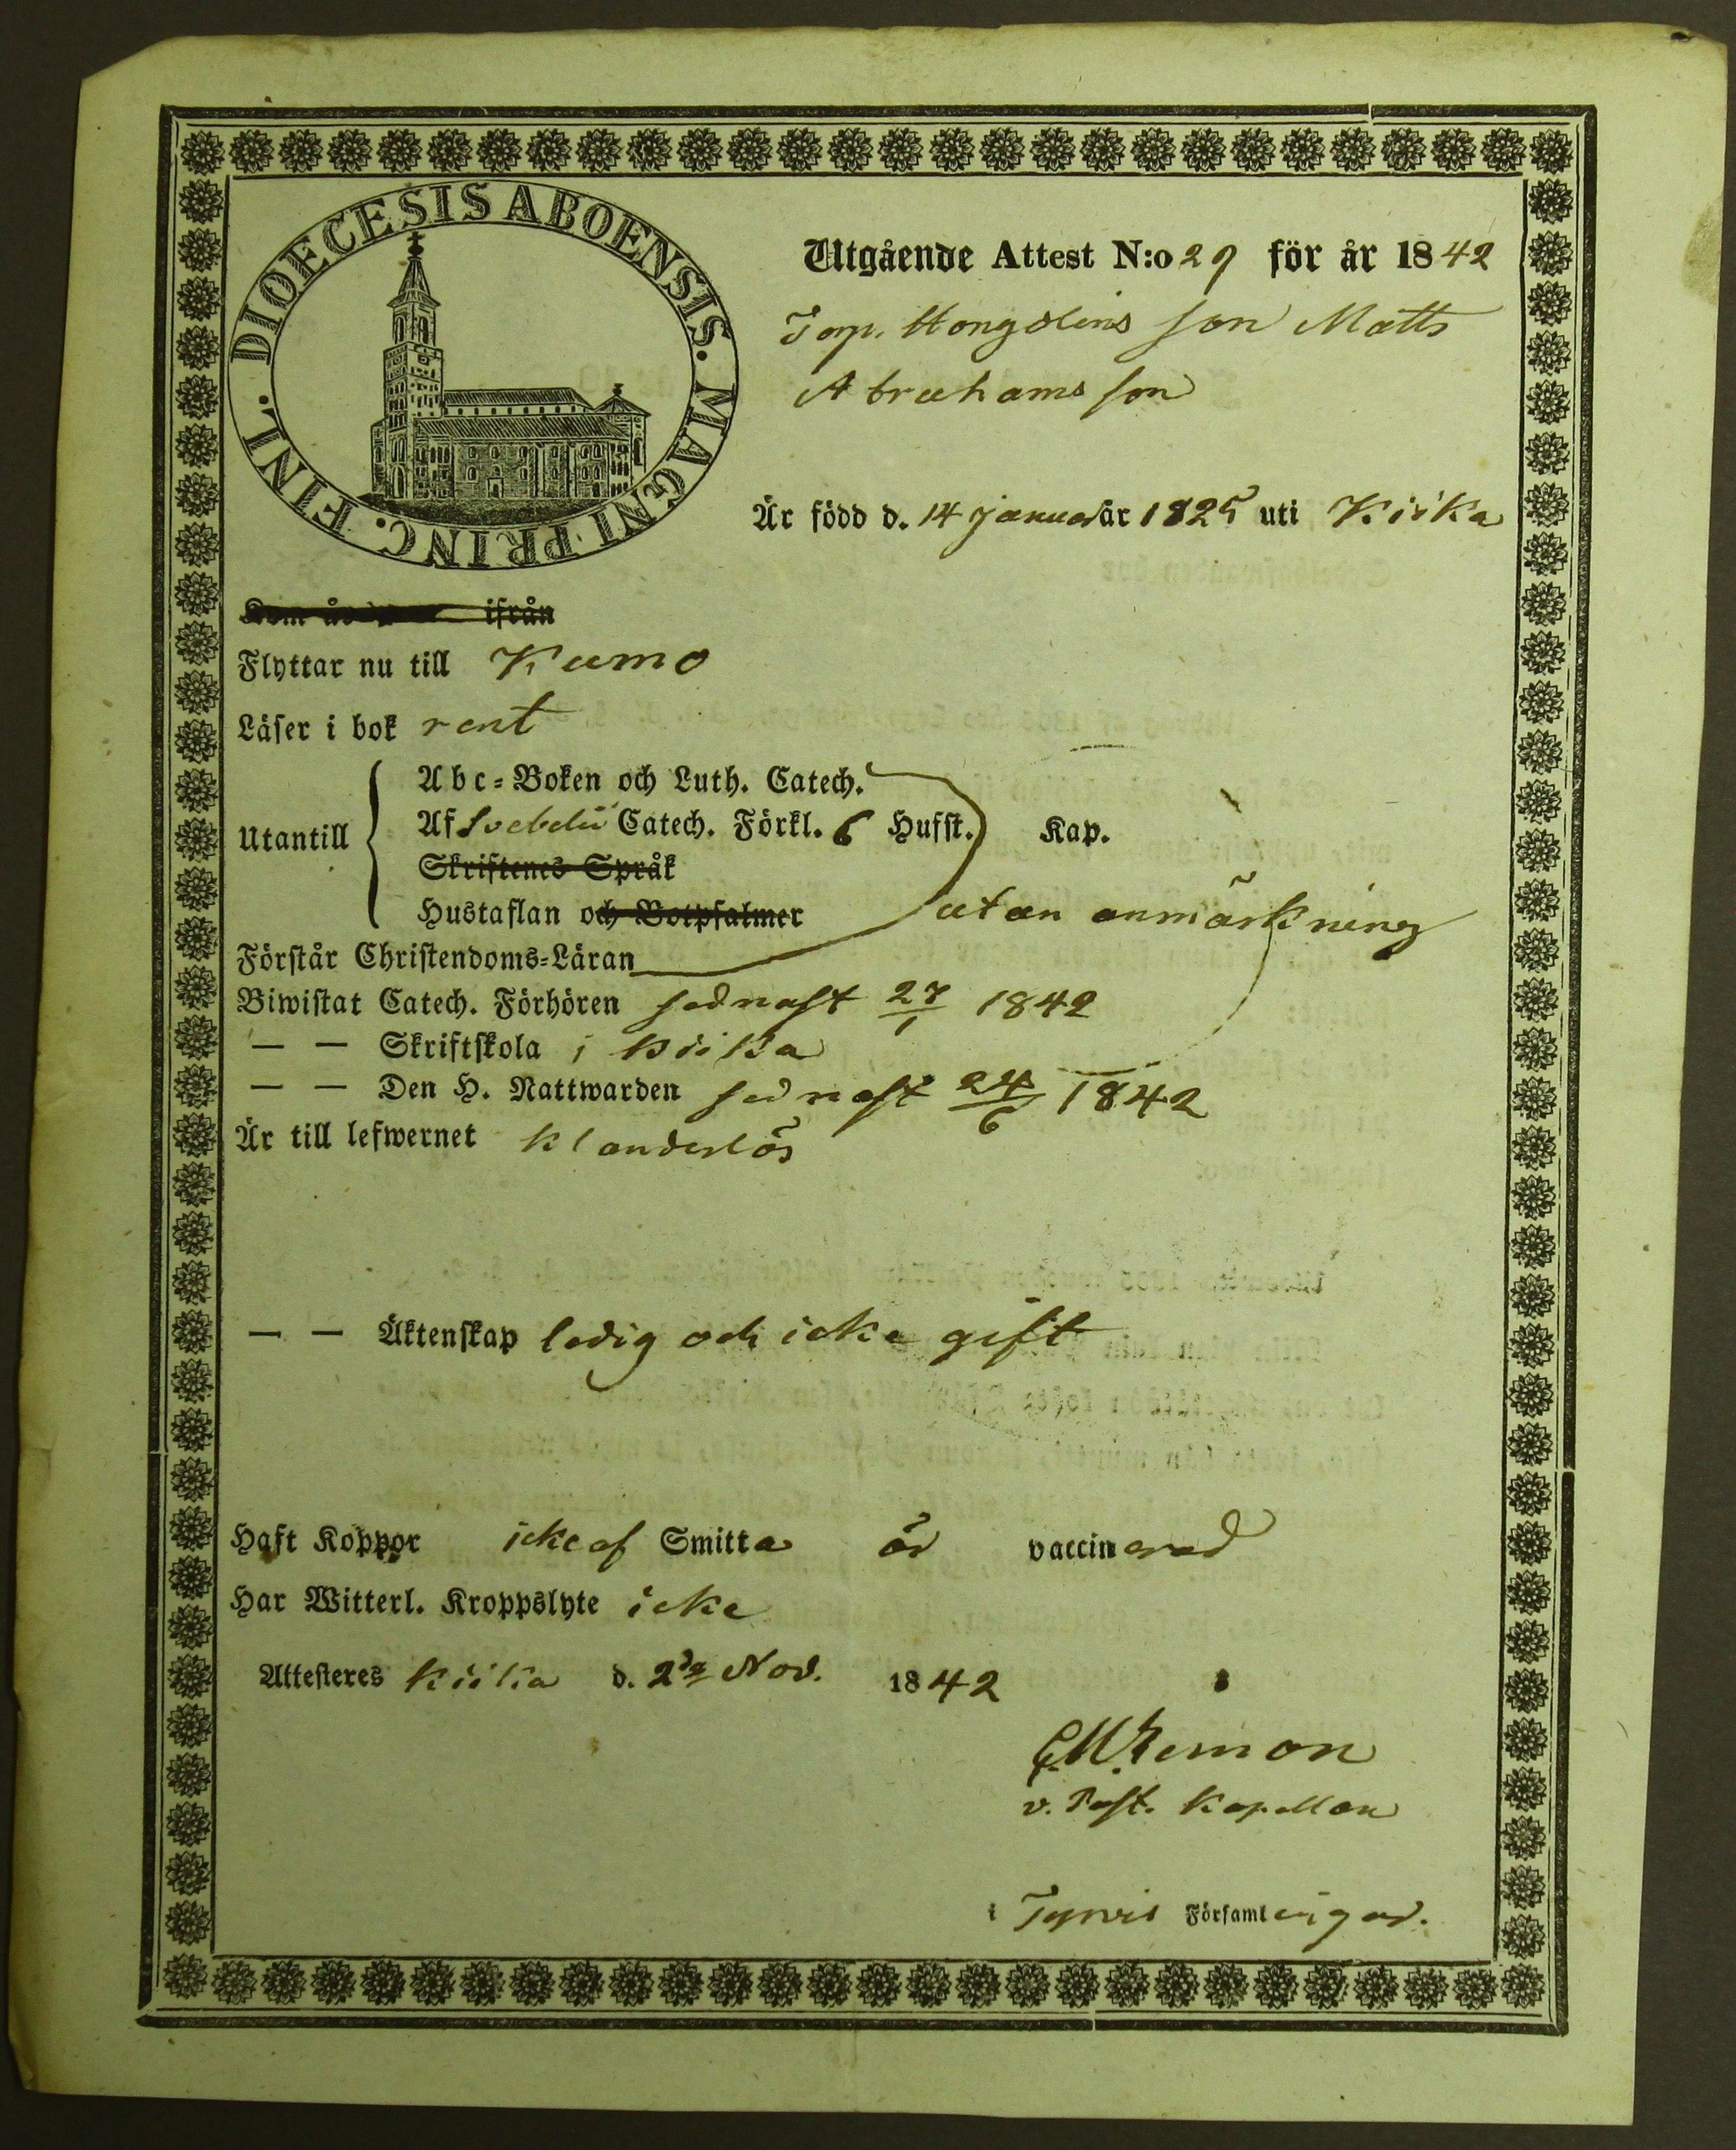 DIOECESIS ABOENSIS. MAGNI PRINC. FINL.
Utgående Attest N:o 29 för år 1842
Torp. Hongelins son Matts
Abrahamsson
Är född d. 14 Januar år 1825 uti Kiika
Kom år ifrån
Flyttar nu till Kumo
Läser i bok rent
Utantill
Abc-Boken och Luth. Catech.
Af Svebelii Catech. Förkl. 6 Hufst. Kap.
Skriftenes Språk
Hustaflan och Botpsalmer utan anmärkning
Förstår Christendoms-Läran
Biwistat Catech. Förhören sednast 27/1 1842
— — Skriftskola i Kiika
— — Den H. Nattwarden sednast 24/6 1842
Är till lefwernet klanderlös
— — Äktenskap ledig och icke gift
Haft Koppor icke af Smitta är vaccinerad
Har Witterl. Kroppslyte icke
Attesteres Kiika d. 2da Nov. 1842
v. Past. Kapellan
i Tyrvis Församlingar.